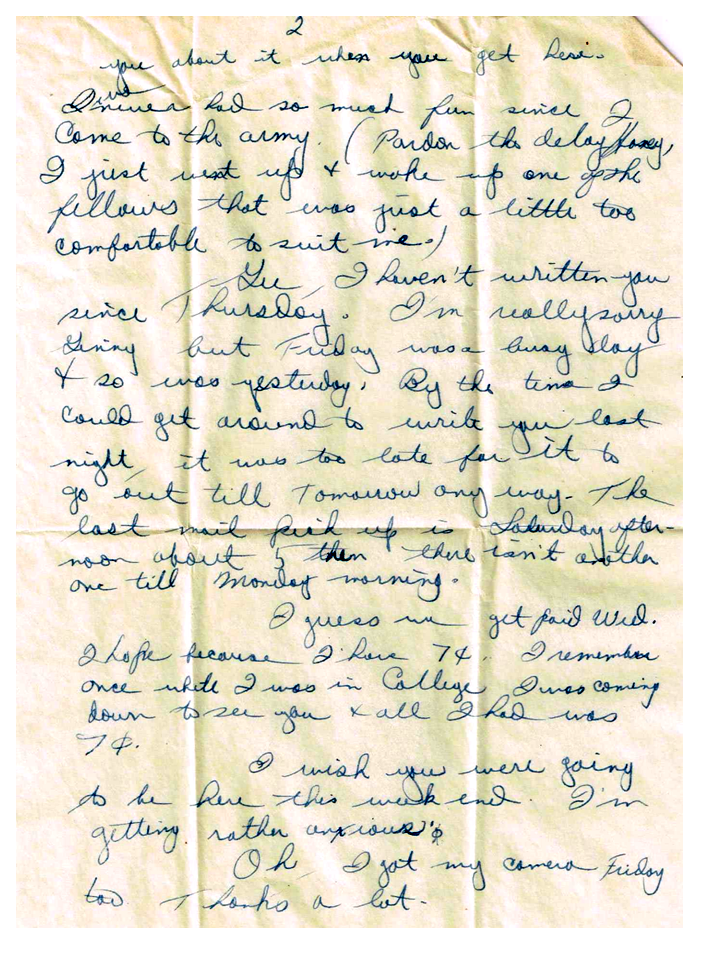 2
you about it when you get here.
I've never had so much fun since I
come to the army. (Pardon the delay Honey,
I just went up & woke up one of the
fellows that was just a little too
comfortable to suit me.)
Gee, I haven't written you
since Thursday. I'm really sorry
Ginny but Friday was a busy day
& so was yesterday. By the time I
could get around to write you last
night, it was too late for it to
go out till Tomorrow any way. The
last mail pick up is Saturday after-
noon about 5 then there isn't another
one till Monday morning.
I guess we get paid Wed.
I hope because I have 7¢. I remember
once while I was in College I was coming
down to see you & all I had was
7¢.
I wish you were going
to be here this week end. I'm
getting rather anxious.
Oh, I got my camera Friday
too Thanks a lot.